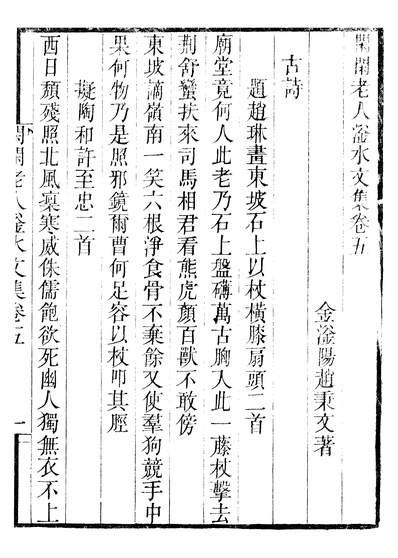 閑閑老人滏水文集卷五
金滏陽趙秉文著
古詩
題趙琳畫東坡石上以杖橫膝扇頭二首
廟堂竟何人此老乃石上盤礴萬古胸入此一藤杖擊去
荆舒蠻扶來司馬相君看熊虎顏百獸不敢傍
東坡謫嶺南一笑六根淨食骨不棄餘又使羣狗競手中
果何物乃是照邪鏡爾曹何足容以杖叩其脛
擬陶和許至忠二首
西日頹殘照北風稟寒威侏儒飽欲死幽人獨無衣不上
閑閑老人滏水文集卷五
一